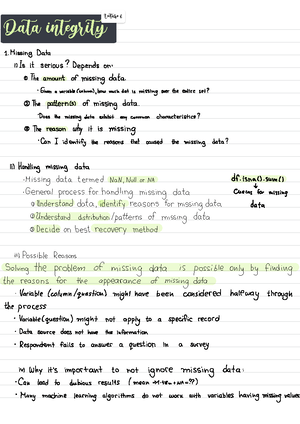 Data integrity
1. Missing Data
i) Is it serious? Depends on:
① The amount of missing data.
· Given a variable (column), how much data is missing over the entire set?
② The pattern(s) of missing data.
· Does the missing data exhibit any common characteristics?
③ The reason why it is missing
· Can I identify the reasons that caused the missing data?
ii) Handling missing data
· Missing data termed NaN, Null or NA
· General process for handling missing data
① Understand data, identify reasons for missing data
② Understand distribution/patterns of missing data
③ Decide on best recovery method
df.isna().sum()
↓
Checks for missing
data
iii) Possible Reasons
Solving the problem of missing data is possible only by finding
the reasons for the appearance of missing data
· Variable (column/question) might have been considered halfway through
the process
· Variable (question) might not apply to a specific record
· Data source does not have the information
· Respondent fails to answer a question in a survey
iv) Why it's important to not ignore missing data:
· Can lead to dubious results (mean
· Many machine learning algorithms do not work with variables having missing values